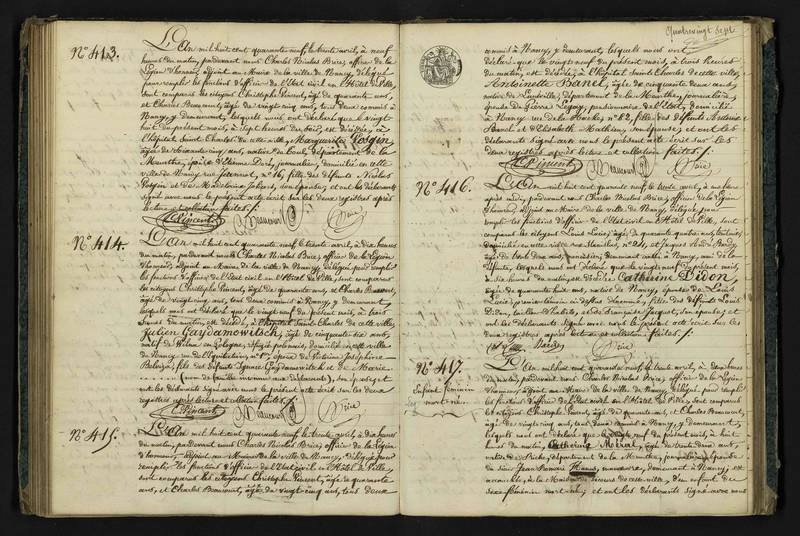 Quatrevingt Sept
N° 413.
L'An mil huit cent quarante neuf, le trente avril, à neuf
heures du matin, pardevant nous Charles Nicolas Brice, officier de la
Légion d'honneur, adjoint au Maire de la ville de Nancy, délégué
pour remplir les fonctions d'officier de l'état civil en l'Hôtel de Ville,
sont comparus les citoyens Christophe Pincent, âgé de quarante ans,
et Charles Beaucourt, âgé de vingt cinq ans, tous deux commis à
Nancy, y demeurant, lesquels nous ont déclaré que le vingt
huit du présent mois, à sept heures du soir, est décédée, à
l'hôpital Saint Charles de cette ville, Marguerite Posgin
âgée de ans, native de département de la
Meurthe, épouse d'Etienne journalier, domiciliée en cette
ville de Nancy, rue n° 16, fille des défunts Nicolas
Posgin et de Madeleine son épouse; et ont les déclarants
signé avec nous le présent acte écrit sur les deux registres après
lecture et collation faites./.
C. Pincent Beaucourt Brice
N° 414.
L'An mil huit cent quarante neuf, le trente avril, à dix heures
du matin, pardevant nous Charles Nicolas Brice, officier de la Légion
d'honneur, adjoint au Maire de la ville de Nancy, délégué pour remplir
les fonctions d'officier de l'état civil en l'Hôtel de Ville, sont comparus
les citoyens Christophe Pincent, âgé de quarante ans, et Charles Beaucourt,
âgé de vingt cinq ans, tous deux commis à Nancy, y demeurant,
lesquels nous ont déclaré que le vingt neuf du présent mois, à trois
heures du matin, est décédé, à l'hôpital Saint Charles de cette ville,
Julien Gaydamowitsch, âgé de cinquante six ans,
natif de Wilna en Pologne, réfugié polonais, domicilié en cette ville
de Nancy rue de l'Equitation, n° époux de Victoire Joséphine
fils des défunts Ignace Gaydamowitsch et de Marie
(nom de famille inconnu aux déclarants), son épouse; et
ont les déclarants signé avec nous le présent acte écrit sur les deux
registres après lecture et collation faites./.
C. Pincent Beaucourt Brice
N° 415.
L'An mil huit cent quarante neuf, le trente avril, à dix heures
du matin, pardevant nous Charles Nicolas Brice, officier de la Légion
d'honneur, adjoint au Maire de la ville de Nancy, délégué pour
remplir les fonctions d'officier de l'état civil en l'Hôtel de Ville,
sont comparus les citoyens Christophe Pincent, âgé de quarante
ans, et Charles Beaucourt, âgé de vingt cinq ans, tous deux
commis à Nancy, y demeurant, lesquels nous ont
déclaré que le vingt neuf du présent mois, à trois heures
du matin, est décédée, à l'hôpital Saint Charles de cette ville,
Antoinette Banel, âgée de cinquante deux ans,
native de Lunéville, département de la Meurthe, journalière,
épouse de Pierre Legay, pensionnaire de l'Etat, domiciliée
à Nancy rue de la Hache, n° 82, fille des défunts Antoine
Banel et d'Elisabeth Mathieu, son épouse; et ont les
déclarants signé avec nous le présent acte écrit sur les
deux registres après lecture et collation faites./.
C. Pincent Beaucourt Brice
N° 416.
L'An mil huit cent quarante neuf, le trente avril, à heure
après midi, pardevant nous Charles Nicolas Brice, officier de la Légion
d'honneur, adjoint au Maire de la ville de Nancy, délégué pour
remplir les fonctions d'officier de l'état civil en l'Hôtel de Ville, sont
comparus les citoyens Louis âgé de quarante
domicilié en cette ville rue n° et Jacques
âgé de trente deux ans, demeurant à Nancy, ami de la
défunte, lesquels nous ont déclaré que le vingt neuf du présent mois,
à six heures du matin, est décédée Catherine Divon,
âgée de quarante huit ans, native de Nancy, épouse de Louis
premier témoin ci-dessus dénommé, fille des défunts Louis
Divon, et de Françoise Jacquot, son épouse; et
ont les déclarants signé avec nous le présent acte écrit sur les
deux registres après lecture et collation faites./.
Brice
N° 417.
Enfant féminin
mort-né.
L'An mil huit cent quarante neuf, le trente avril, à heures
du matin, pardevant nous Charles Nicolas Brice, officier de la Légion
d'honneur, adjoint au Maire de la ville de Nancy, délégué pour remplir
les fonctions d'officier de l'état civil en l'Hôtel de Ville, sont comparus
les citoyens Christophe Pincent, âgé de quarante ans, et Charles Beaucourt,
âgé de vingt cinq ans, tous deux commis à Nancy, y demeurant,
lesquels nous ont déclaré que le vingt neuf du présent mois, à huit
heures du matin, Catherine âgée de trente deux ans,
native de département de la Meurthe, épouse
du sieur Jean manœuvre, demeurant à Nancy, est
accouchée, à la Maison de Secours de cette ville, d'un enfant du
sexe féminin mort-né; et ont les déclarants signé avec nous